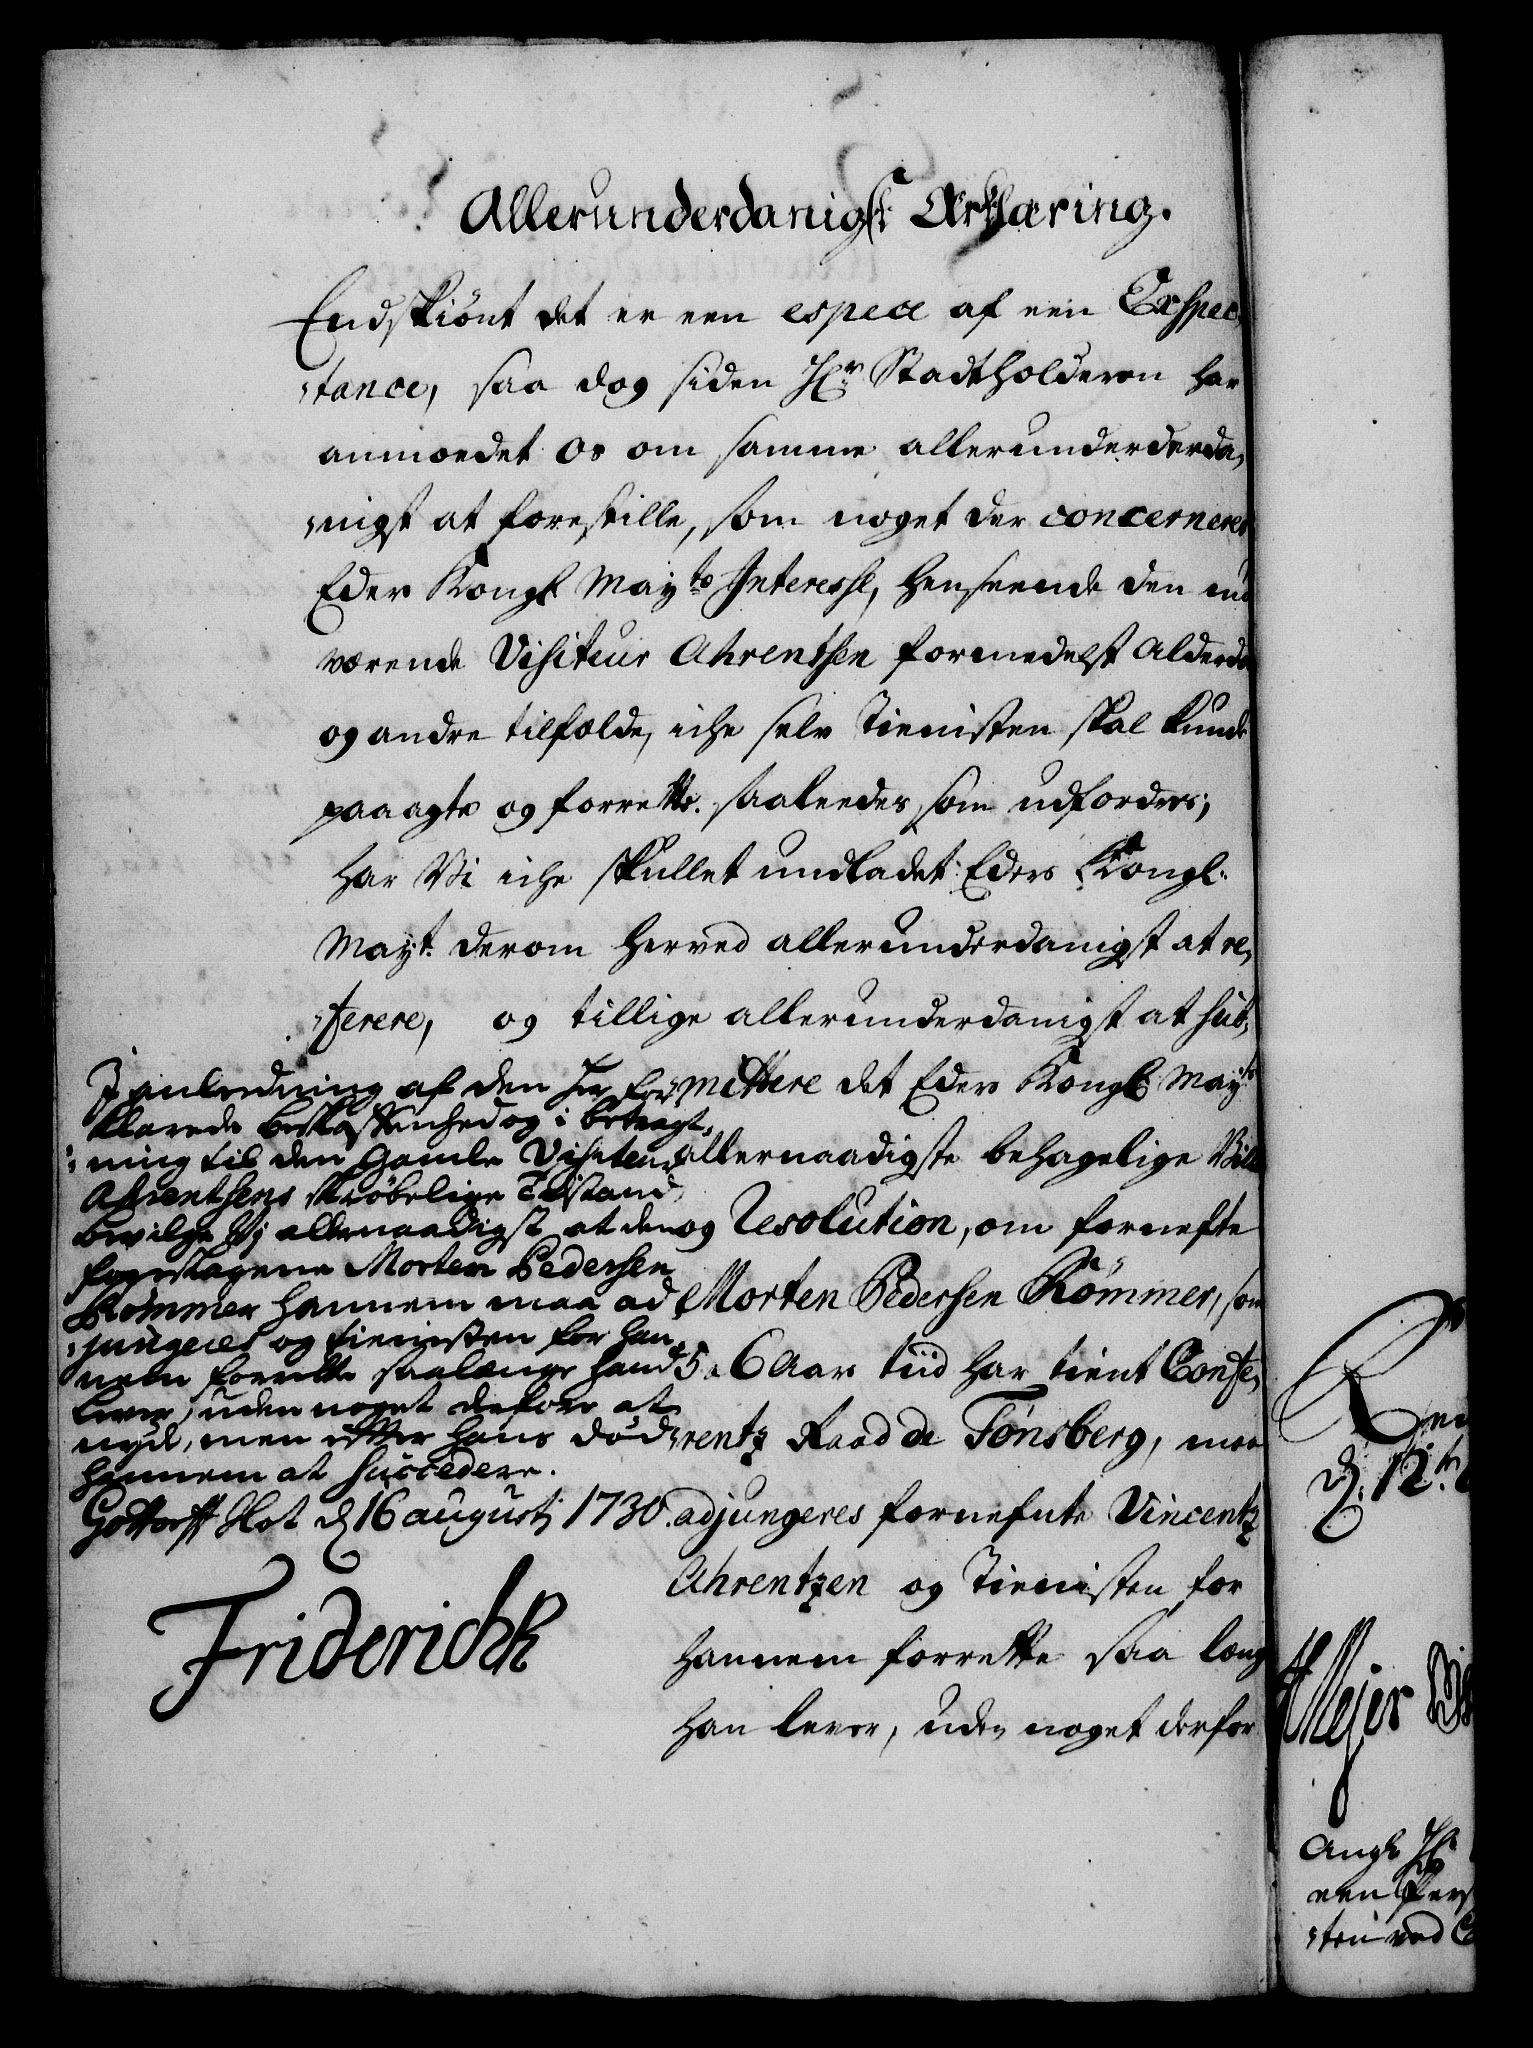 Allerunderdanigst Erklæring.
Endskiönt det er een espece af een Exspec-
-tance, saa dog siden Hr. Stadtholderen har
anmoedet os om samme allerunderderda-
-nigst at forestille, som noget der concernerer
Eders Kongl Mayts Interesse, henseende den nu
værende Visiteur Ahrentsen formedelst Alderdom
og andre tilfælde, iche selv Tienisten skal kunde
paaagte og forrette saaleedes som udfordres;
har Vi iche skullet undladet Eders Kongl.
Mayt. derom herved allerunderdanigst at re-
-ferere, og tillige allerunderdanigst at sub-
-mittere det Eders Kongl Mayts
allernaadigste behagelige Villie
og Resolution, om fornefte
Morten Pedersen Römmer, som
5 a 6 Aar tiid har tient Confe-
-rentz Raad de Tönsberg, maa
adjungeres fornefnte Vincentz
Ahrentzen og Tienisten for
hannem forrette saa long
han lever, uden noget derfor
I anledning af den her for-
klarede beskaffenhed og i betragt-
-ning til den Gamle Visiteur
Ahrentsens skröbelige Tilstand,
bevilge Vj allernaadigst at den
foreslagene Morten Pedersen
Römmer hannem maa ad
-jungeres og tienisten for han-
nem forrette saalænge hand
lever, uden noget derfore at
nyde, men efter hans död
hannem at Succedere.
Gottorff Slot d 16 augustj 1730.
Friderich R
Ren
d. 12te
Mejer
Angl H
een Pers
-ten ved C